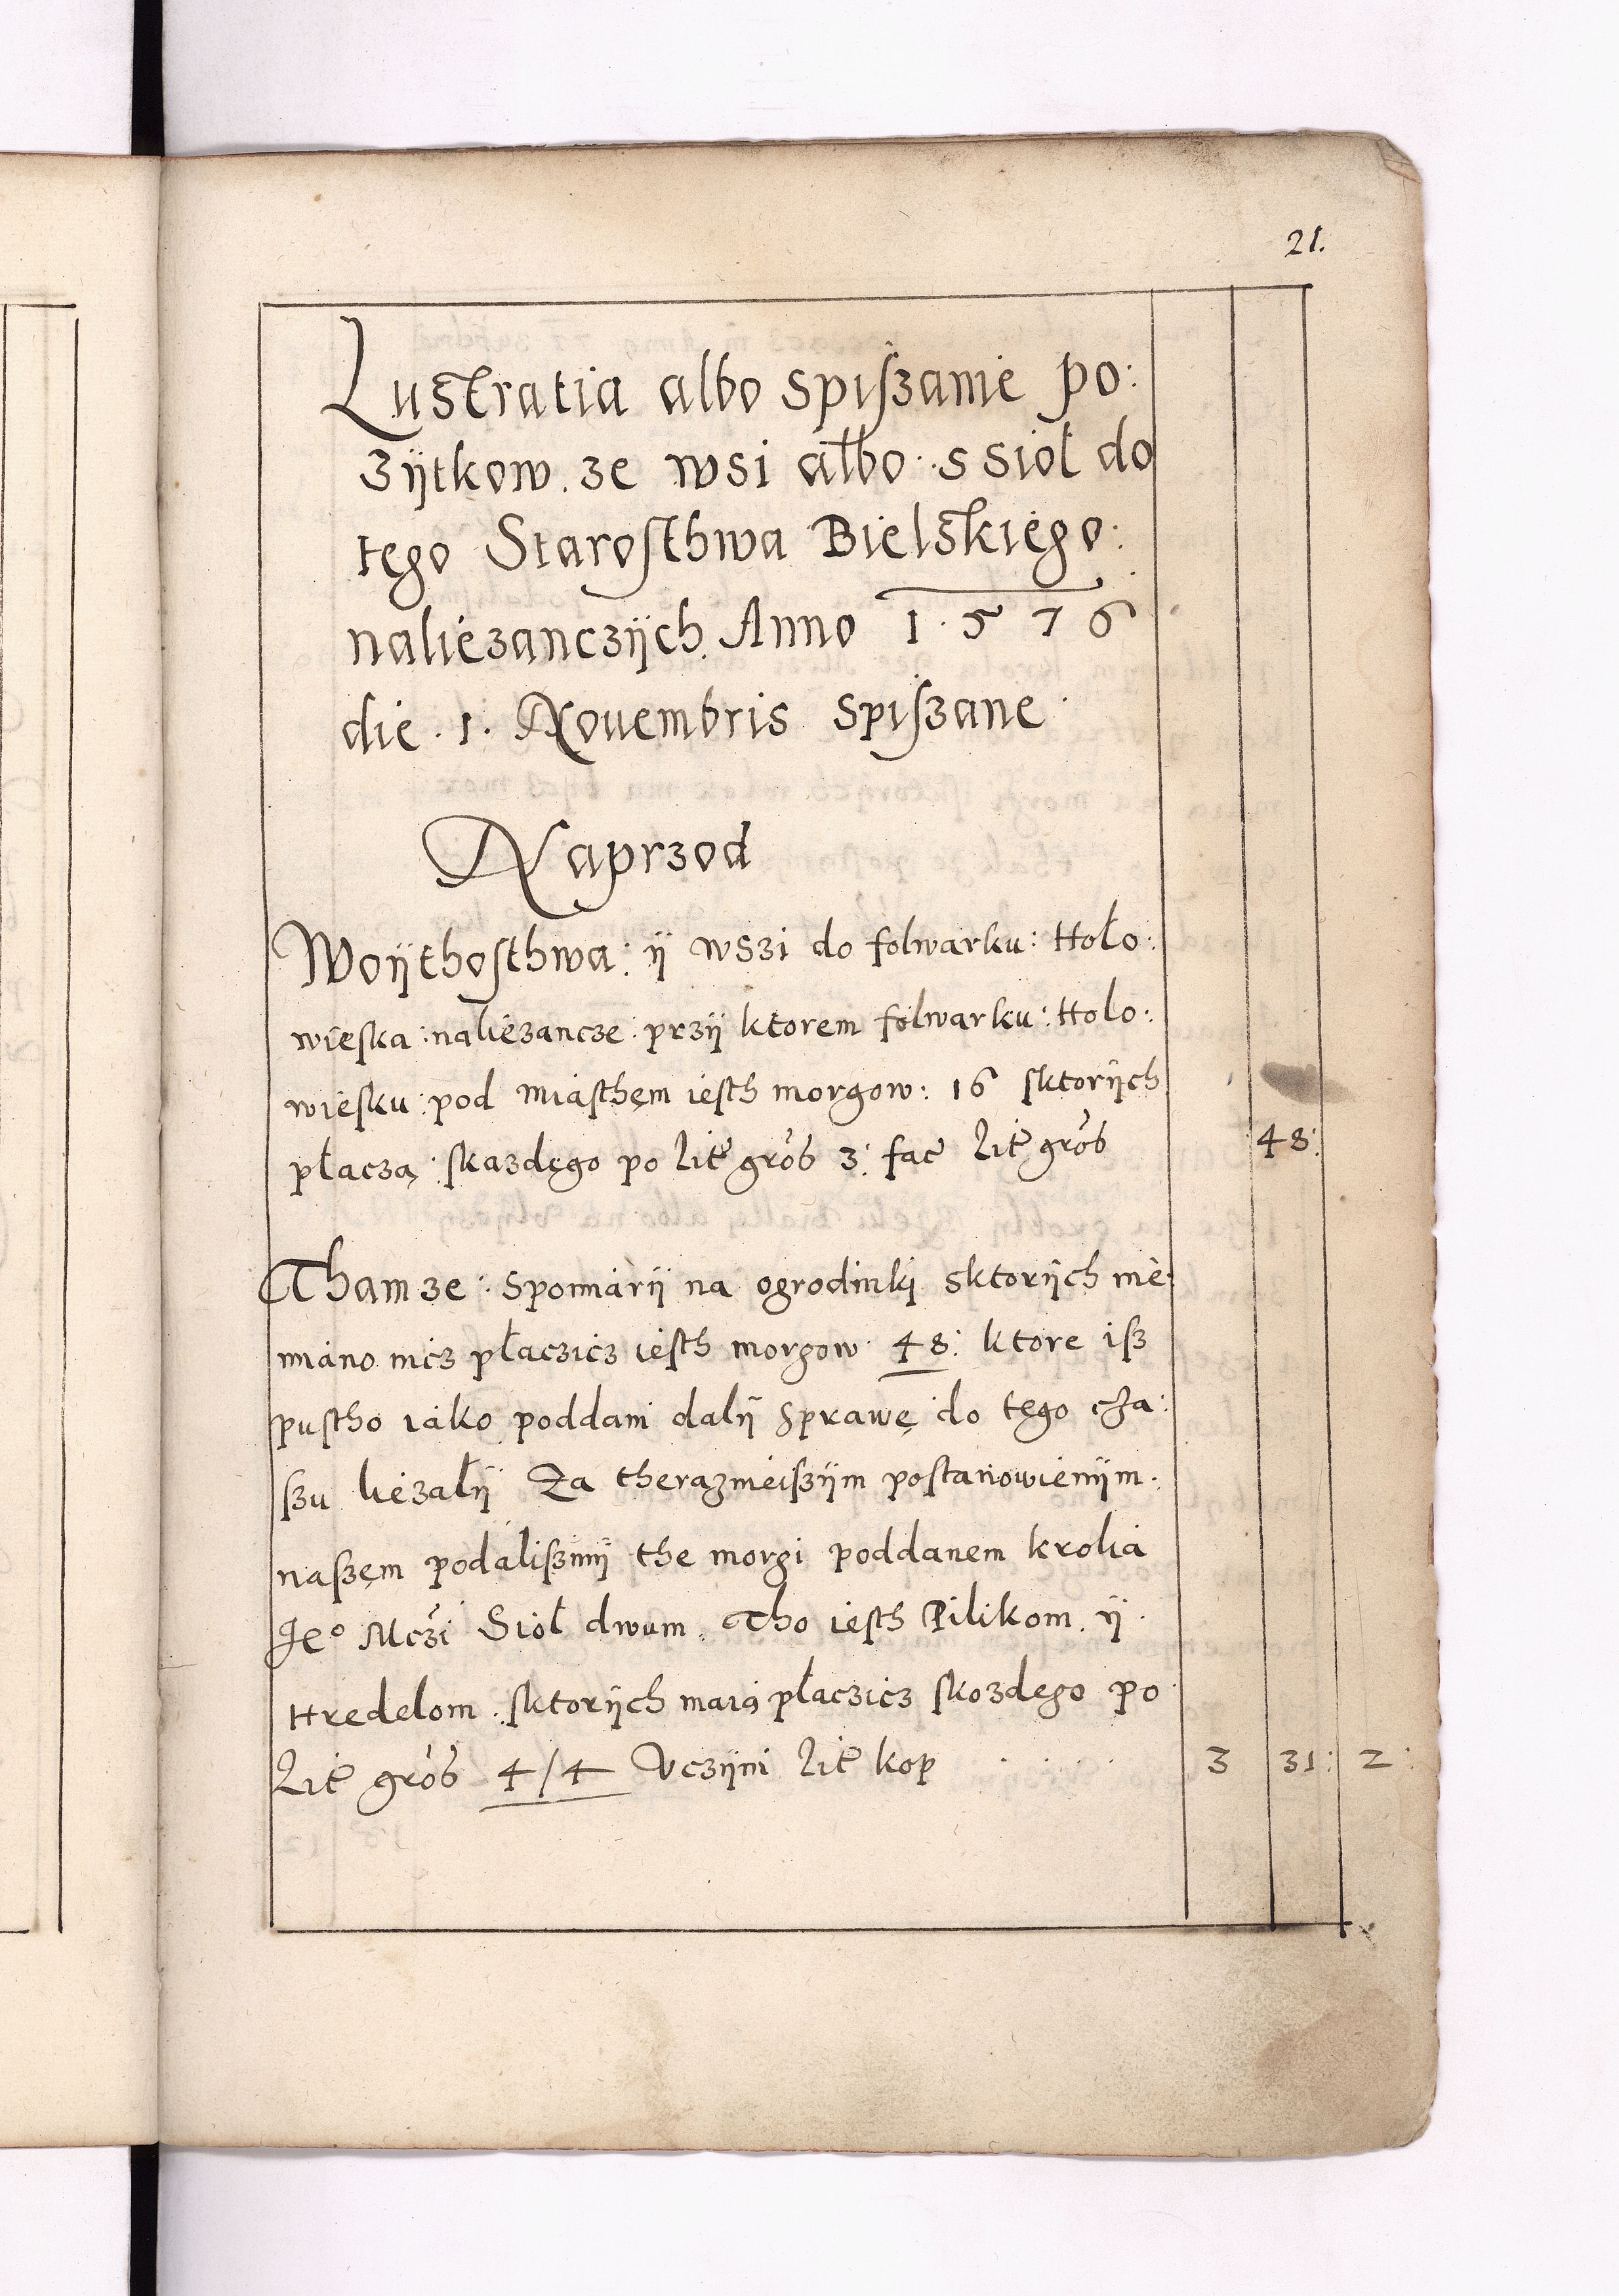 21.
Lustratia albo spiszanie po:
zÿtkow. ze wsi albo. s siol do
tego Starosthwa Bielskiego:
naliezanczÿch. Anno 1576
die. 1. Nouembris spiszane.
Naprzod
Woÿthosthwa: ÿ wszi do folwarku: Hoło:
wieska: naliezancze: przÿ ktorem folwarku: Holo:
wiesku: pod miasthem iesth morgow: 16 sktorÿch
płacza: skazdego po Lit̃ gros̃ 3: fac̃ Lit̃ gros̃ 48:
Tham ze: spomiarÿ na ogrodinki sktorÿch nie:
miano nicz płaczicz iesth morgow. 48: ktore isz
pustho iako poddani dalÿ sprawę do tego cza:
szu liezałÿ Za therazmeiszÿm postanowienÿm.
naszem podaliszmÿ the morgi poddanem krolia
Je° Mczi Sioł dwum. Tho iesth Pilikom. ÿ.
Hredelom. sktorÿch maią płaczicz skozdego po
Lit̃ gros̃ 4/4 Vczÿni Lit̃ kop . . . . 3 31: 2: